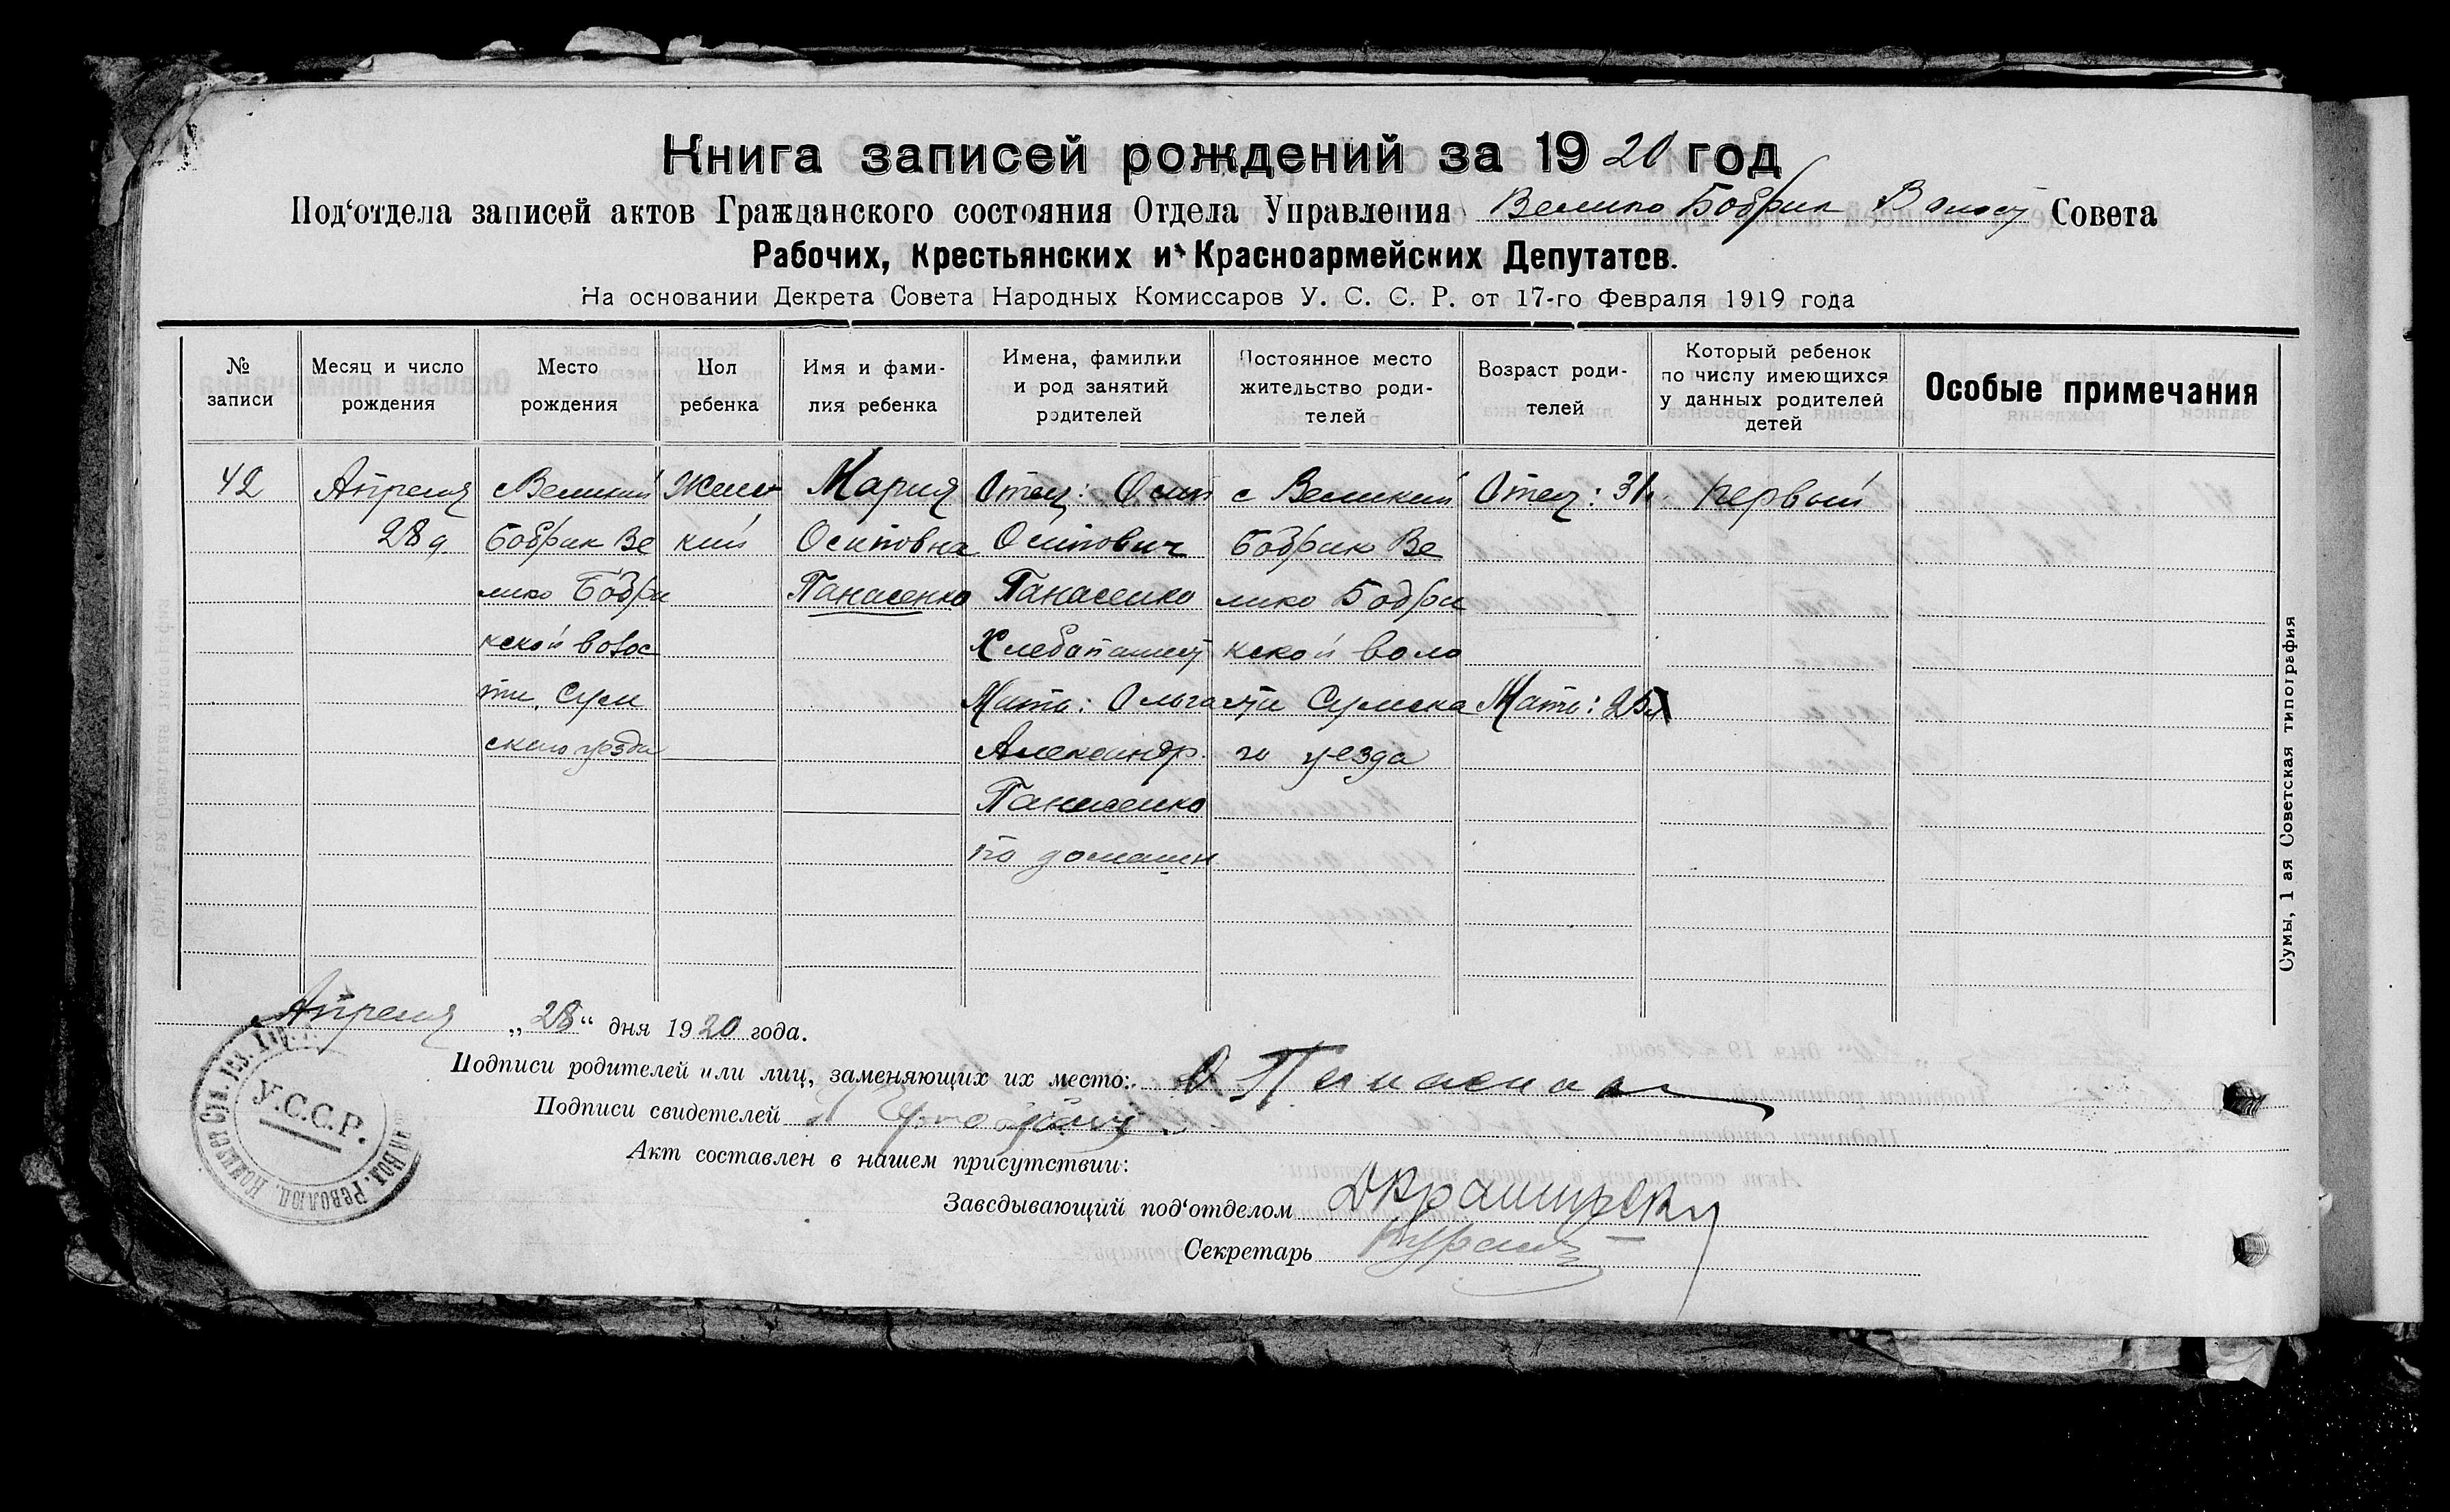 Книга записей рождений за 1920 год
Под'отдела записей актов Гражданского состояния Отдела Управления Велико Бобрик Волост Совета
Рабочих, Крестьянских и Красноармейских Депутатов.
На основании Декрета Совета Народных Комиссаров У. С. С. Р. от 17-го Февраля 1919 года
№
записи
Месяц и число
рождения
Место
рождения
Пол
ребенка
Имя и фами-
лия ребенка
Имена, фамилии
и род занятий
родителей
Постоянное место
жительство роди-
телей
Возраст роди-
телей
Который ребенок
по числу имеющихся
у данных родителей
детей
Особые примечания
42
Апреля
28 д
с Великий
Бобрик Ве
лико Бобри
кской волос
ти, Сум
ского уезда
Женс
кий
Мария
Осиповна
Панасенко
Отец: Осип
Осипович
Панасенко
Хлебопашец
Мать: Ольга
Александр.
Панасенко
по домашн
с Великий
Бобрик Ве
лико Бобри
кской воло
сти Сумска
го уезда
Отец: 31 л.
Мать: 25 л
первый
Апреля „28“ дня 1920 года.
Подписи родителей или лиц, заменяющих их место: О Панасенко
Подписи свидетелей
Акт составлен в нашем присутствии:
Заведывающий под'отделом
Секретарь
У.С.С.Р.
Вол. Революц. Комитет
Сумы, 1 ая Советская типография